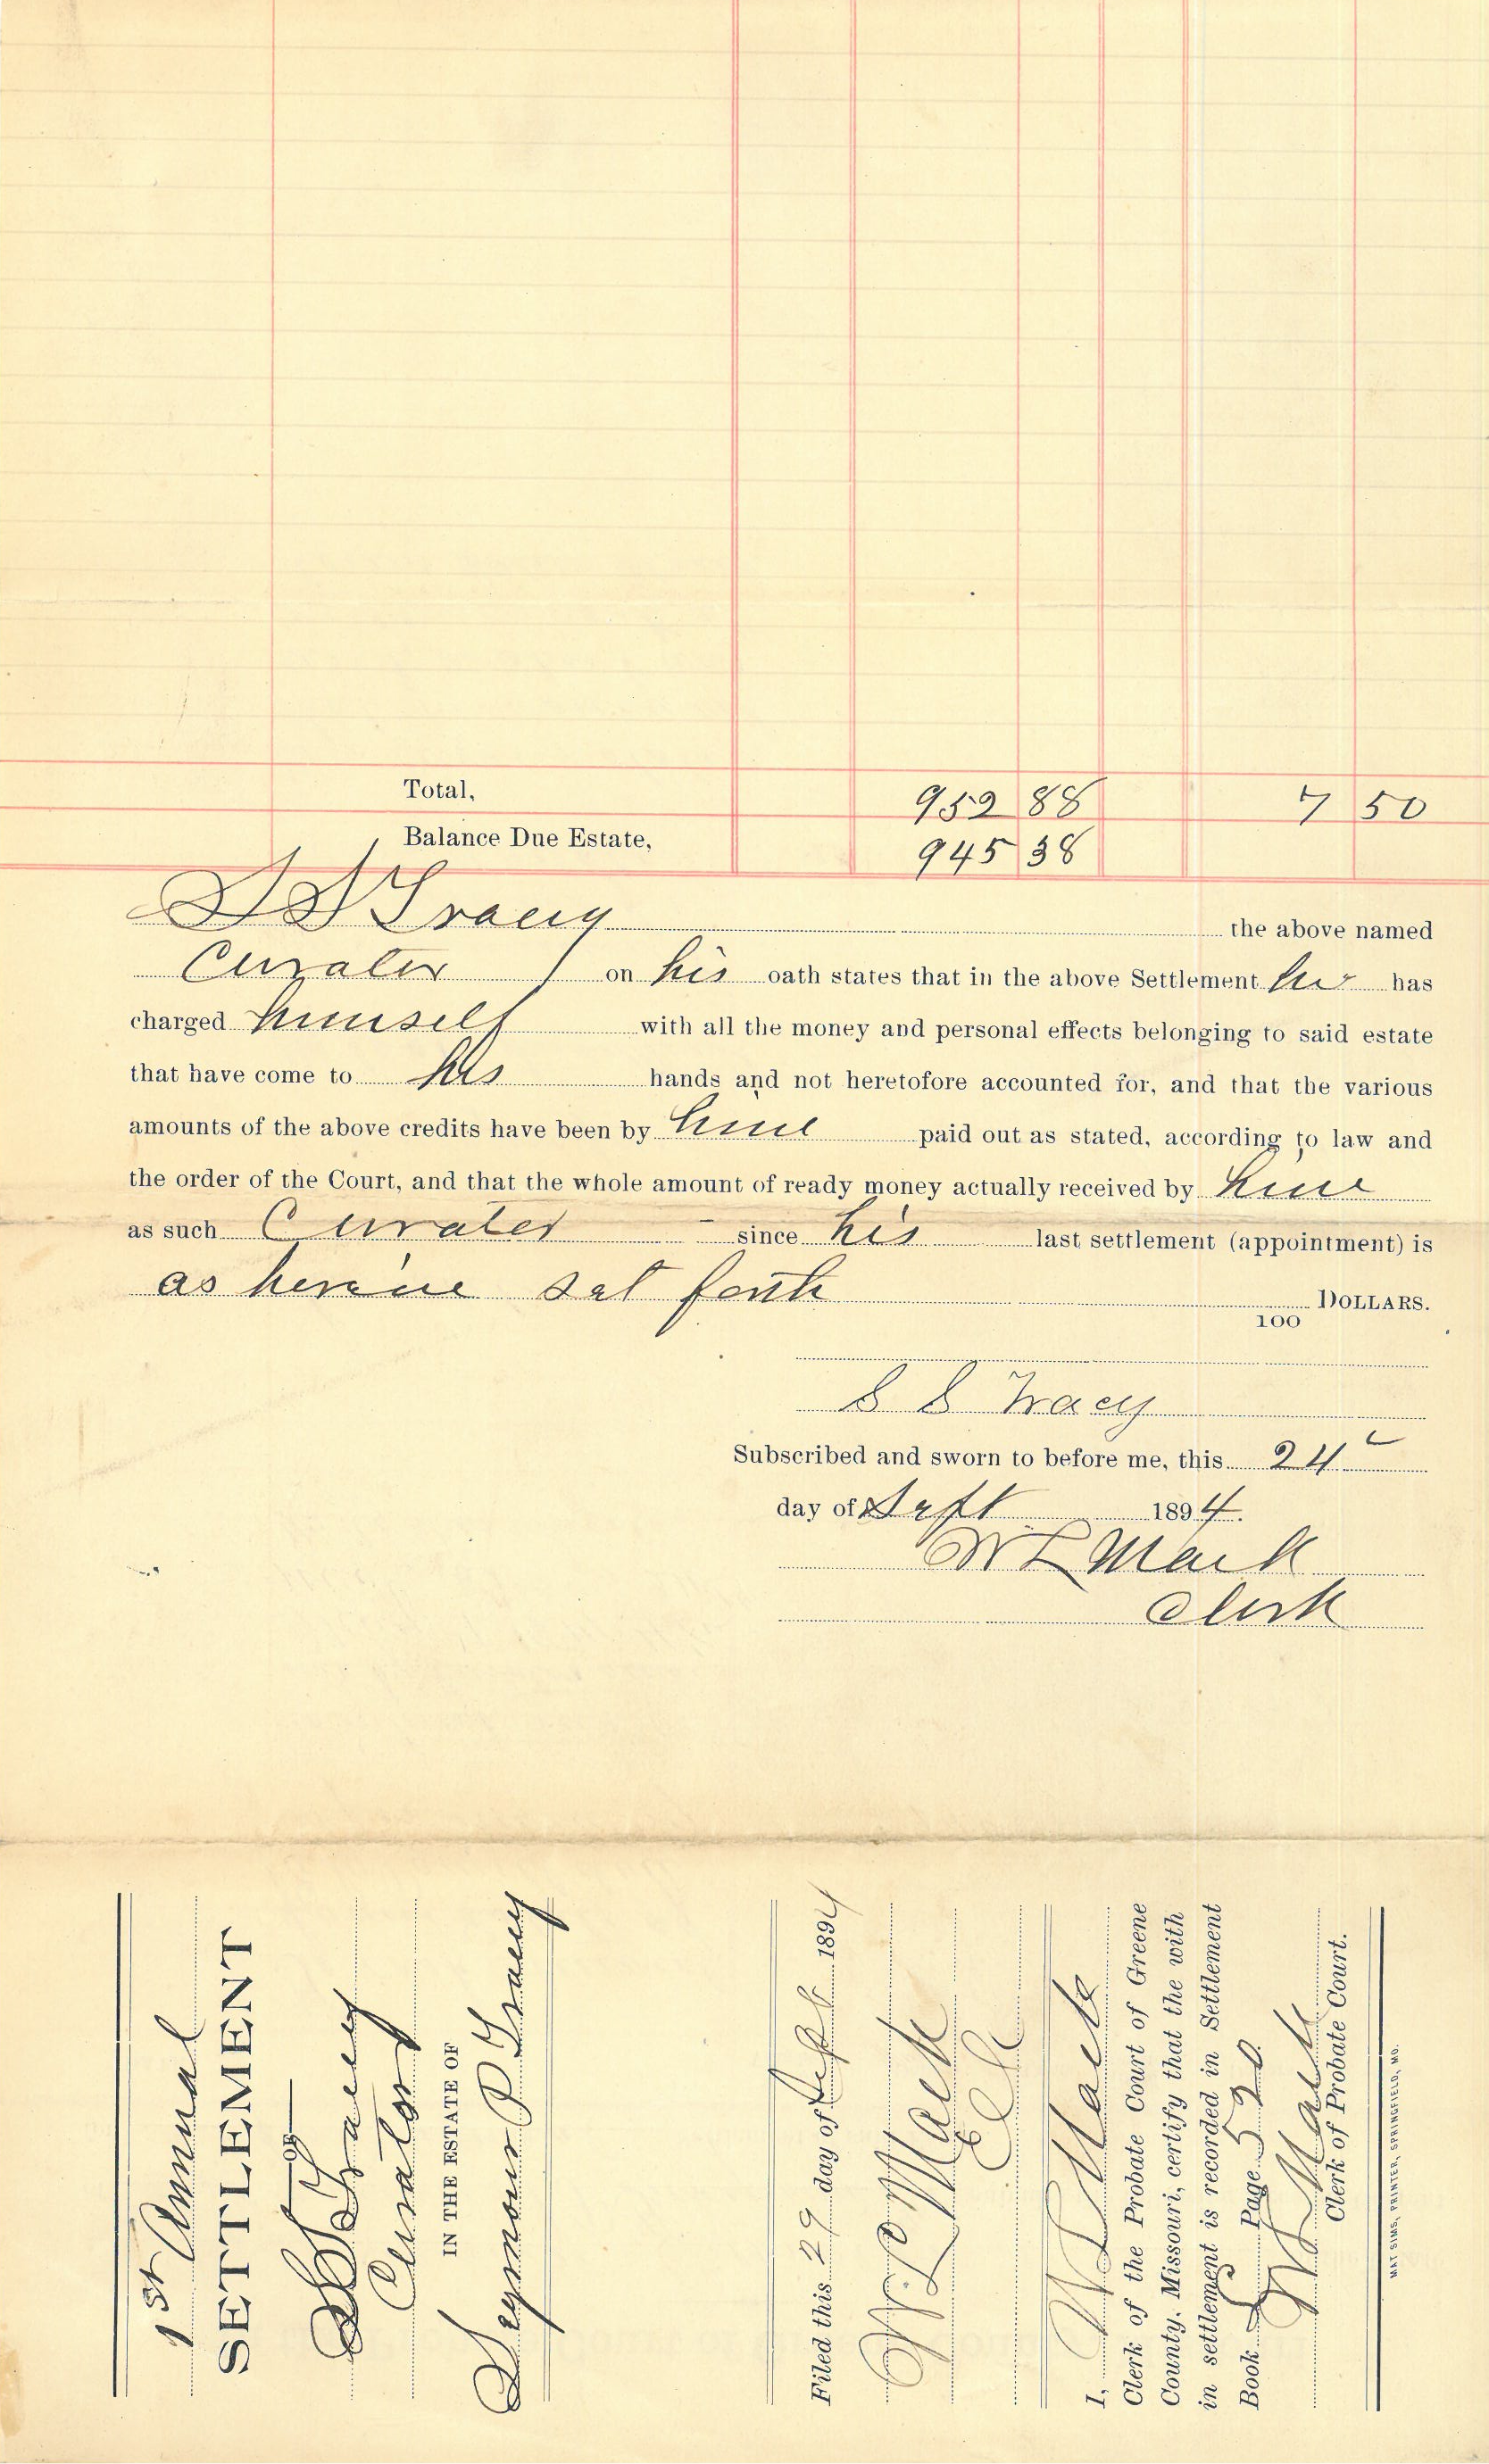 Total, 952 88 7 50
Balance Due Estate, 945 38
S S Tracy the above named
Curator on his oath states that in the above Settlement he has
charged himself with all the money and personal effects belonging to said estate
that have come to his hands and not heretofore accounted for, and that the various
amounts of the above credits have been by him paid out as stated, according to law and
the order of the Court, and that the whole amount of ready money actually received by him
as such Curator since his last settlement (appointment) is
as herein set forth DOLLARS.
100
S S Tracy
Subscribed and sworn to before me, this 24
day of Sept 1894.
W L Mack
Clerk
1st Annual
SETTLEMENT
OF
S S Tracy
Curator
IN THE ESTATE OF
Seymour P Tracy
Filed this 29 day of Sept 1894
W L Mack
Clk
I, W L Mack
Clerk of the Probate Court of Greene
County, Missouri, certify that the with
in settlement is recorded in Settlement
Book S Page 520
W L Mack
Clerk of Probate Court.
MAT SIMS, PRINTER, SPRINGFIELD, MO.